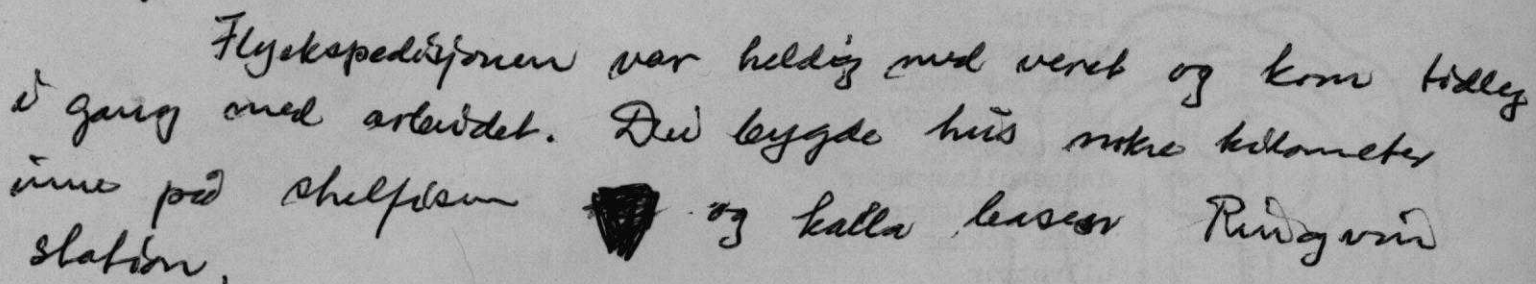 Flyekspedisjonen var heldig med veret og kom tidleg
i gang med arbeidet. Dei bygde hus nokre kilometer
inne på shelfisen og kalla basen Ringvin
station.